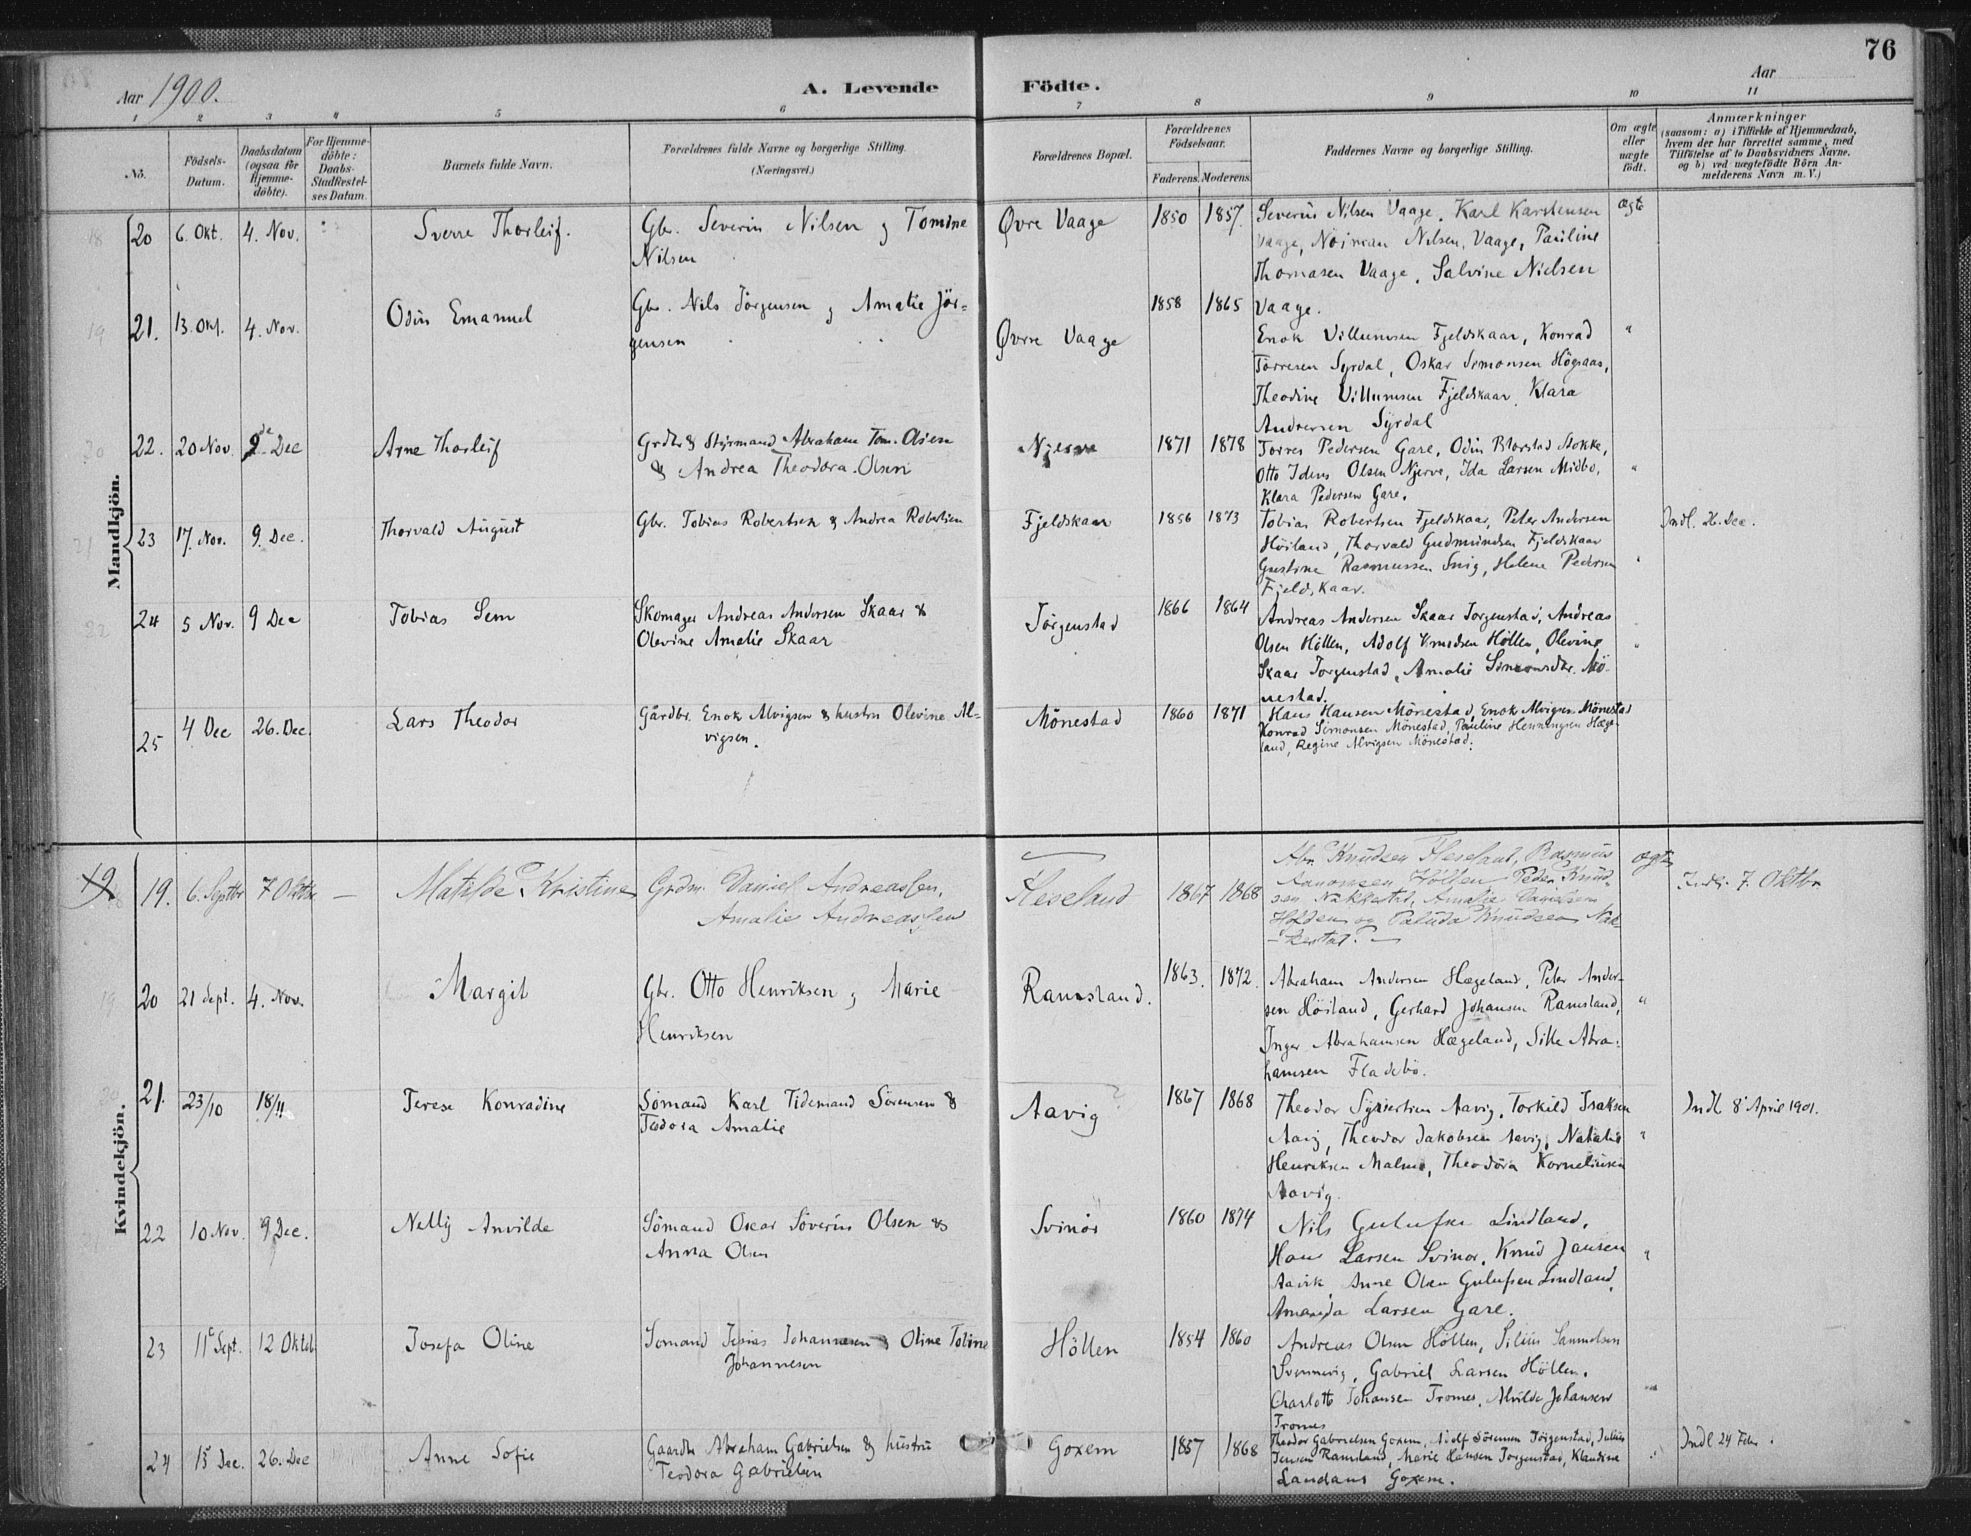 76
Aar 1900.
A. Levende Födte.
Aar
1 2 3 4 5 6 7 8 9 10 11
No.
Födsels-Datum.
Daabsdatum (ogsaa for Hjemme-döbte).
For Hjemme-döbte: Daabs-Stadfæstel-ses Datum.
Barnets fulde Navn.
Forældrenes fulde Navne og borgerlige Stilling. (Næringsvei.)
Forældrenes Bopæl.
Forældrenes Födselsaar.
Faderens. Moderens.
Faddernes Navne og borgerlige Stilling.
Om ægte eller uægte födt.
Anmærkninger (saasom: a) i Tilfælde af Hjemmedaab, hvem der har forrettet samme, med Tilföielse af to Daabsvidners Navne. og b) ved uægtefödte Börn Anmelderens Navn m. V.)
Mandkjön.
20 6. Okt. 4. Nov. Sverre Thorleif. Gbr. Severin Nilsen og Tomine
Nilsen
Øvre Vaage 1850 1857. Severin Nilsen Vaage, Karl Karstensen ægte
Vaage, Nilsen, Vaage, Pauline
Thomasen Vaage, Salvine Nielsen
Vaage.
21. 13. Okt. 4. Nov. Odin Emanuel Gbr. Nils Jörgensen og Amalie Jör-
gensen
Øvre Vaage 1858 1865
Enok Villumsen Fjeldskaar, Konrad "
Torresen Syrdal, Oskar Simonsen Högsaas,
Theodine Villumsen Fjeldskaar, Klara
Andersen Syrdal
22. 20 Nov. 2de Dec Arne Thorleif Grdbr & Styrmand Abraham Tom. Olsen
& Andrea Theodora Olsen
Njerve 1871 1878 Torres Pedersen Gare, Odin Stokke,
Otto Olsen Njerve, Ida Larsen Midbo, "
Klara Pedersen Gare.
23 17. Nov. 9. Dec. Thorvald August Gbr. Tobias Robertsen & Andrea Robertsen
Fjeldskaar 1856 1873 Tobias Robertsen Fjeldskaar, Peter Andersen Indl. 26. Dec.
Höiland, Thorvald Gudmundsen Fjeldskaar
Rasmussen Snig, Helene Pedersen "
Fjeldskaar.
24 5 Nov. 9 Dec Tobias Sem Skomager Andreas Andersen Skaar &
Olevine Amalie Skaar
Jörgenstad 1866 1864 Andreas Andersen Skaar Jorgenstad, Andreas
Olsen Höllen, Adolf Knudsen Höllen, Olevine "
Skaar Jorgenstad, Amalie Simonsdtr. Mö-
nestad.
25 4 Dec 26. Dec. Lars Theodor Gårdbr. Enok Alvigsen & hustru Olevine Al-
vigsen.
Mönestad 1860 1871 Hans Hansen Mönestad, Enok Alvigsen Mönestad
Konrad Simonsen Mönestad, Pauline Henningsen Hæge-
land, Regine Alvigsen Mönestad.
Kvindekjön.
19. 6. Septbr 7 Oktbr — Matilde Kristine Grdm. Daniel Andreassen,
Amalie Andreassen
Heseland 1867 1868 Abr. Knudsen Heseland, Rasmus ægte Indl. 7. Oktbr
Aanonsen Höllen Peder Knud-
sen Nakkestad, Amalie Danielsen
Holden og Paluda Knudsen Nak-
kestad. —
20 21 Sept. 4. Nov. Margit Gbr. Otto Henriksen og Marie
Henriksen
Ramsland. 1863. 1872. Abraham Andersen Hægeland, Peter Ander-
sen Höiland, Gerhard Johansen Ramsland, "
Inger Abrahamsen Hægeland, Silke Abra-
hamsen Fladebö.
21. 23/10 18/11 Terese Konradine Sömand Karl Tidemand Sörensen &
Tedora Amalie
Aavig 1867 1868 Theodor Syvertsen Aavig, Torkild Isaksen Indl 8 April 1901.
Aavig, Theodor Jakobsen Aavig, Natalie "
Henriksen Malmö, Theodora Korneliusen
Aavig.
22 10 Nov. 9 Dec. Nelly Anvilde Sömand Oscar Söverin Olsen &
Anna Olsen
Svinör 1860 1874 Nils Gulufsen Lindland,
Hans Larsen Svinor, Knud Jansen "
Aavik, Anne Olsen Gulufsen Lindland,
Amanda Larsen Gare.
23 11 Sept. 12 Oktob Josefa Oline Sömand Johannesen & Oline Tobine
Johannesen
Höllen 1854 1860 Andreas Olsen Höllen, Samuelsen
Svennevig, Gabriel Larsen Höllen.
Charlotte Johansen Tromes, Alvilde Johansen "
Tromes
24 15 Dec. 26. Dec Anne Sofie Gaardbr Abraham Gabrielsen & hustru
Teodora Gabrielsen
Goxem 1857 1868 Theodor Gabrielsen Goxem, Adolf Sörensen Jörgenstad, Julius Indl 24 Febr.
Jensen Ramsland, Marie Hansen Jorgenstad, Klaudine
Goxem.